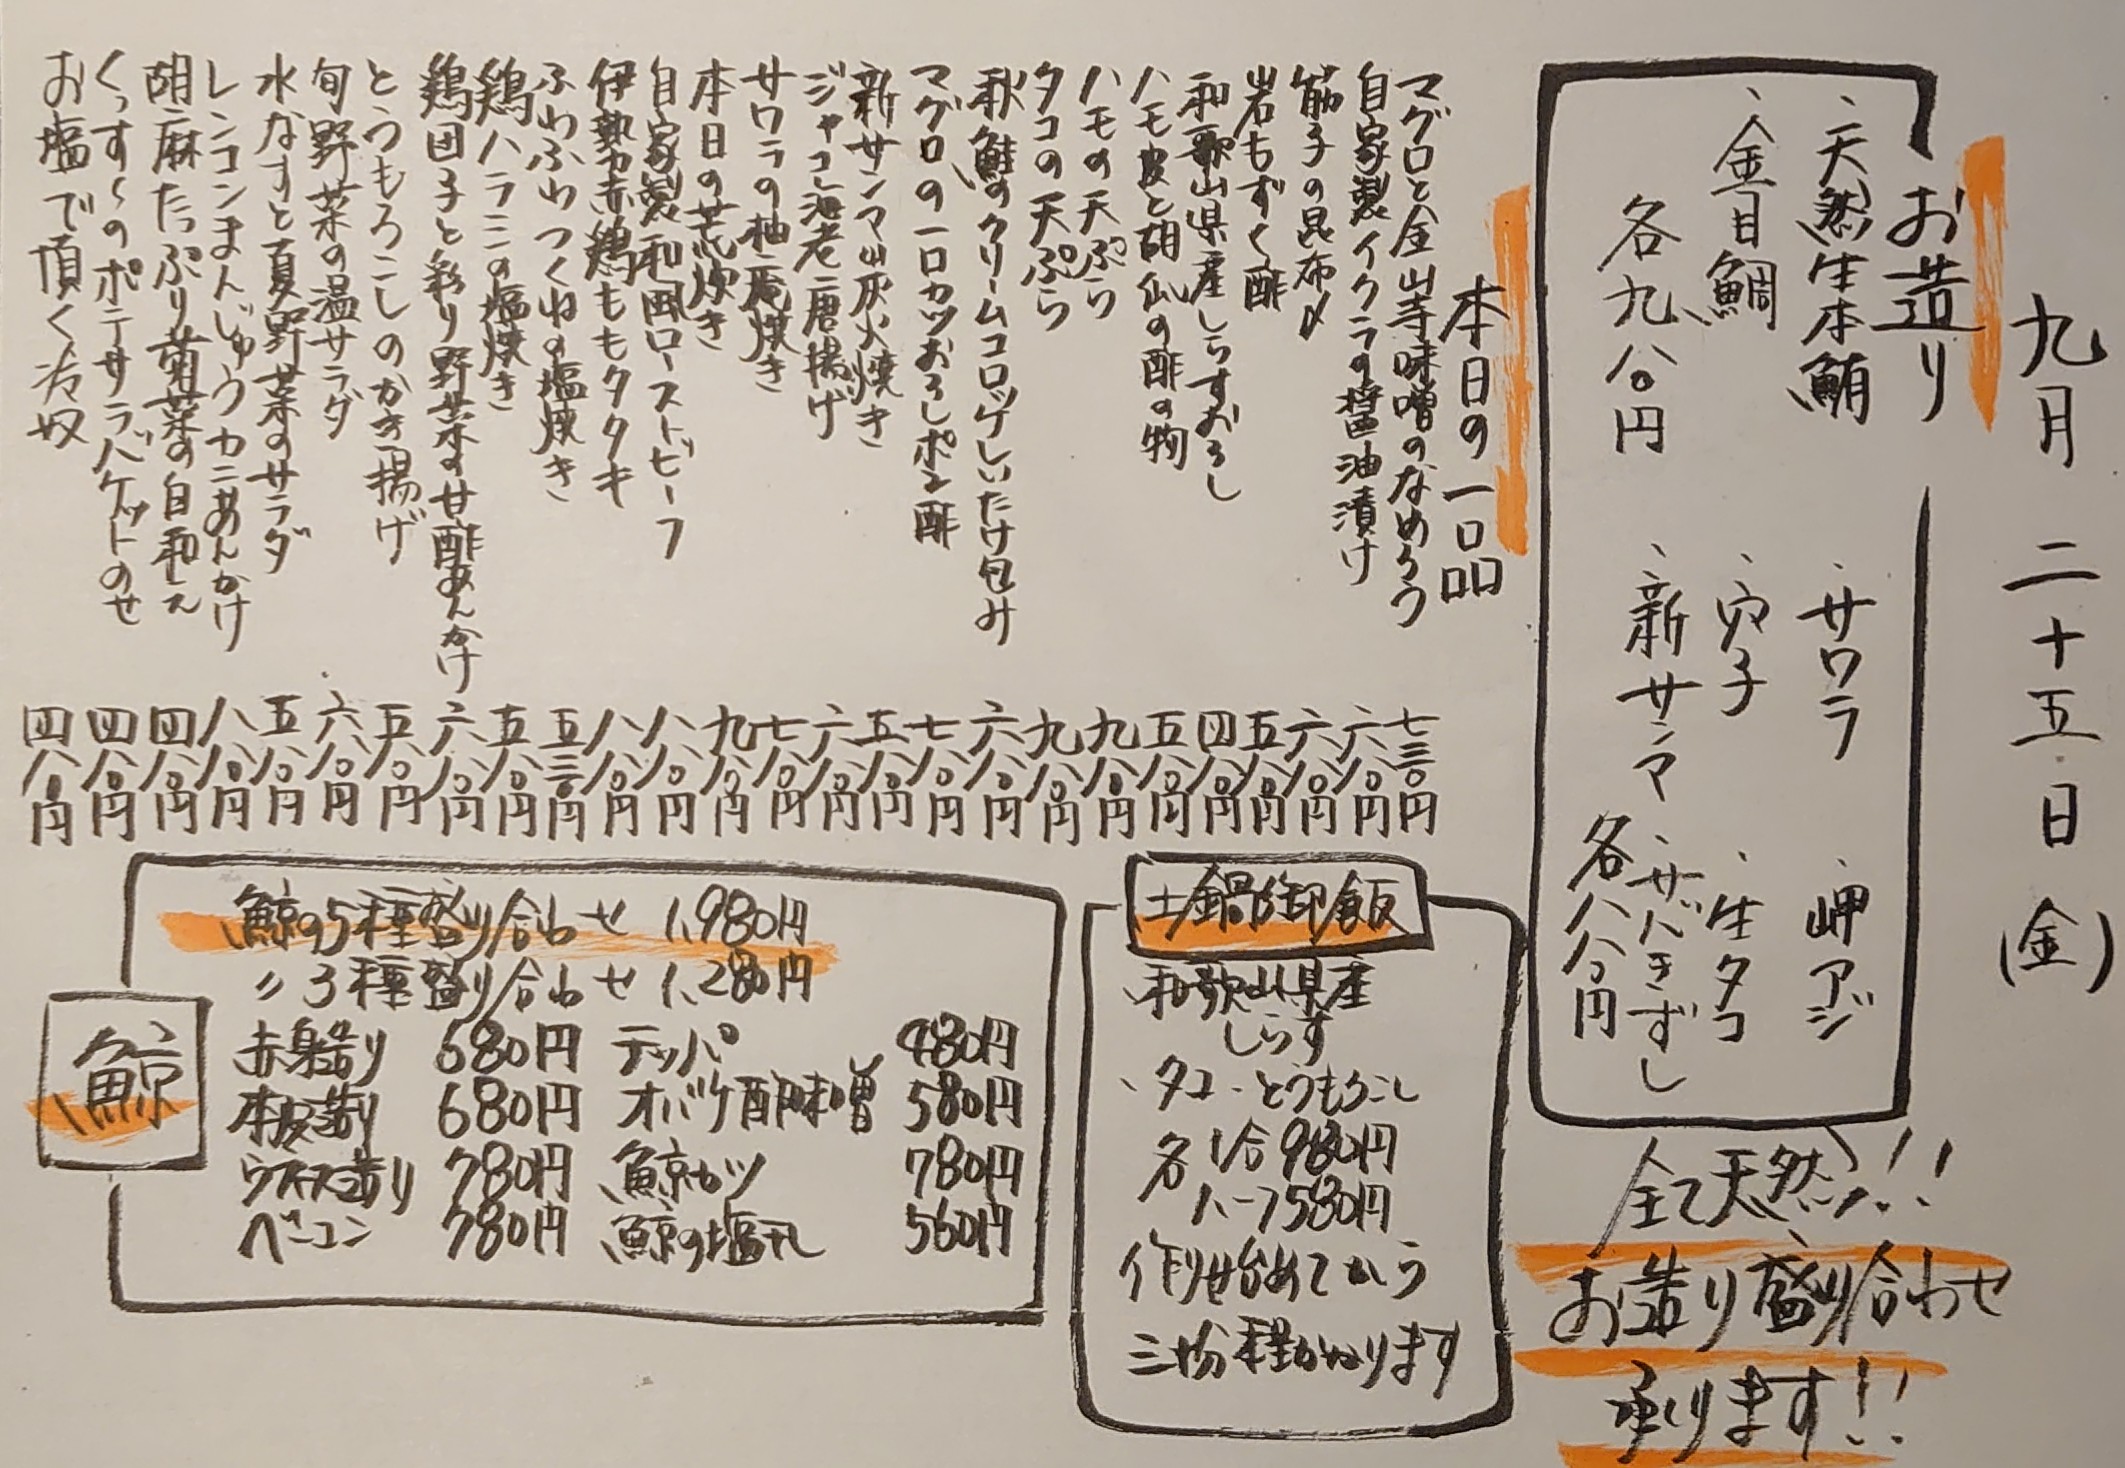 九月二十五日(金)
お造り
、天然生本鮪
、金目鯛
各九八〇円
、サワラ
、岬アジ
、穴子
、生タコ
、新サンマ
、サバきずし
各八八〇円
全て天然!!
お造り盛り合わせ
承ります!!
本日の一品
マグロと金山寺味噌のなめろう 七三〇円
自家製イクラの醤油漬け 六八〇円
筋子の昆布〆 六八〇円
岩もずく酢 五八〇円
和歌山県産しらすおろし 四八〇円
ハモ皮と胡瓜の酢の物 五八〇円
ハモの天ぷら 九八〇円
タコの天ぷら 九八〇円
秋鮭のクリームコロッケしいたけ包み 六八〇円
マグロの一口カツおろしポン酢 七八〇円
新サンマ山灰火焼き 五八〇円
ジャコ海老唐揚げ 六八〇円
サワラの柚庵焼き 七八〇円
本日の荒炊き 九八〇円
自家製和風ローストビーフ 八八〇円
伊勢赤鶏ももタタキ 八八〇円
ふわふわつくねの塩焼き 五三〇円
鶏ハラミの塩焼き 五八〇円
鶏団子と彩り野菜の甘酢あんかけ 六八〇円
とうもろこしのかき揚げ 五八〇円
旬野菜の温サラダ 六八〇円
水なすと夏野菜のサラダ 五八〇円
レンコンまんじゅうカニあんかけ 八八〇円
胡麻たっぷり菊菜の白和え 四八〇円
くっすくのポテサラバケットのせ 四八〇円
お塩で頂く冷奴 四八〇円
土鍋御飯
和歌山県産
しらす
、タコ、とうもろこし
各 1合 980円
ハーフ580円
作り始めてから
三十分程かかります
鯨
鯨の5種盛り合わせ 1,980円
〃 3種盛り合わせ 1,280円
赤身造り 680円 テッパ 480円
本皮造り 680円 オバケ酢味噌 580円
ウネス造り 780円 鯨カツ 780円
ベーコン 780円 鯨の塩丸 560円